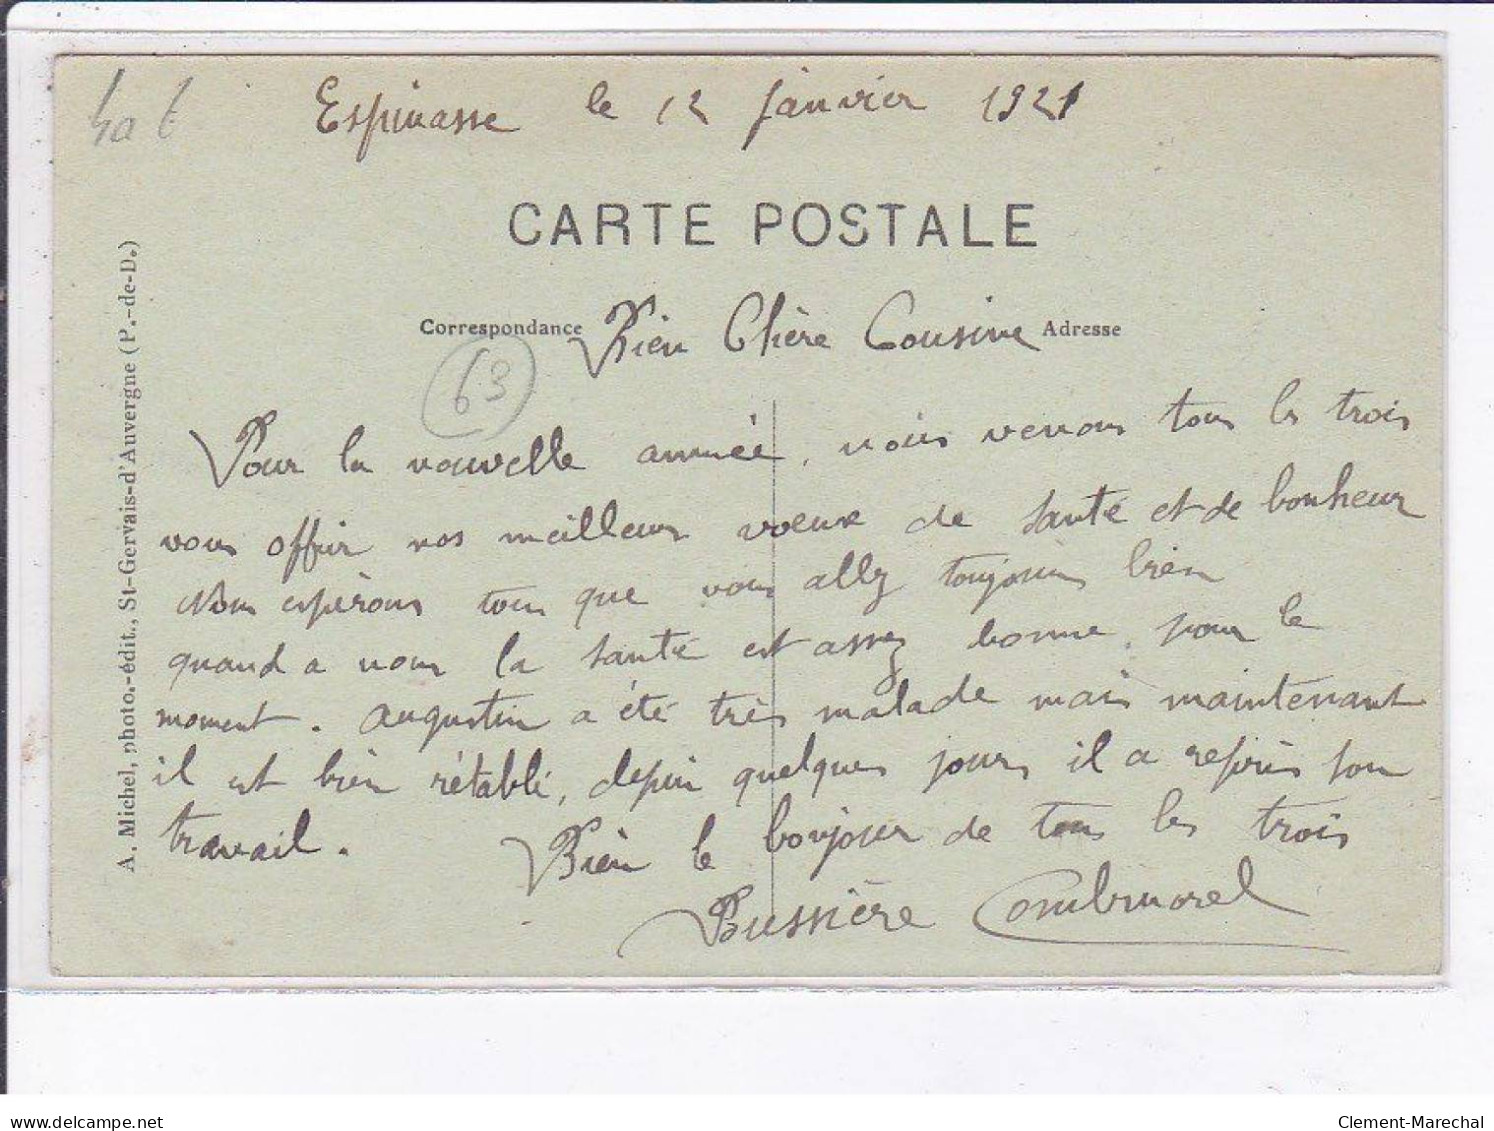 Espinasse le 12 janvier 1921
CARTE POSTALE
Correspondance
Adresse
Bien Chère Cousine
63
A. Michel, photo.-édit., St-Gervais-d'Auvergne (P.-de-D.)
Pour la nouvelle année, nous venons tous les trois
vous offrir nos meilleurs voeux de santé et de bonheur
Nous espèrons tous que vous allez toujours bien
quand a nous la santé est assez bonne, pour le
moment. Augustin a été très malade mais maintenant
il est bien rétabli, depuis quelques jours il a repris son
travail. Bien le bonjour de tous les trois
Bussière Combmorel
Delcampe.net
Clement-Marechal